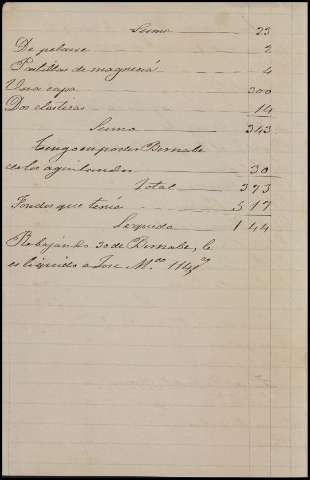 Suma 23
De pelarse 2
Pastillas de magnesia 4
Una capa 300
Dos elasticas 14
Suma 343
Tengo en poder Bernabe
de los aguinaldos 30
Total 373
Fondos que tenía 517
Se queda 144
Rebajando 30 de Bernabe, le
es liquido a Jose M. 114